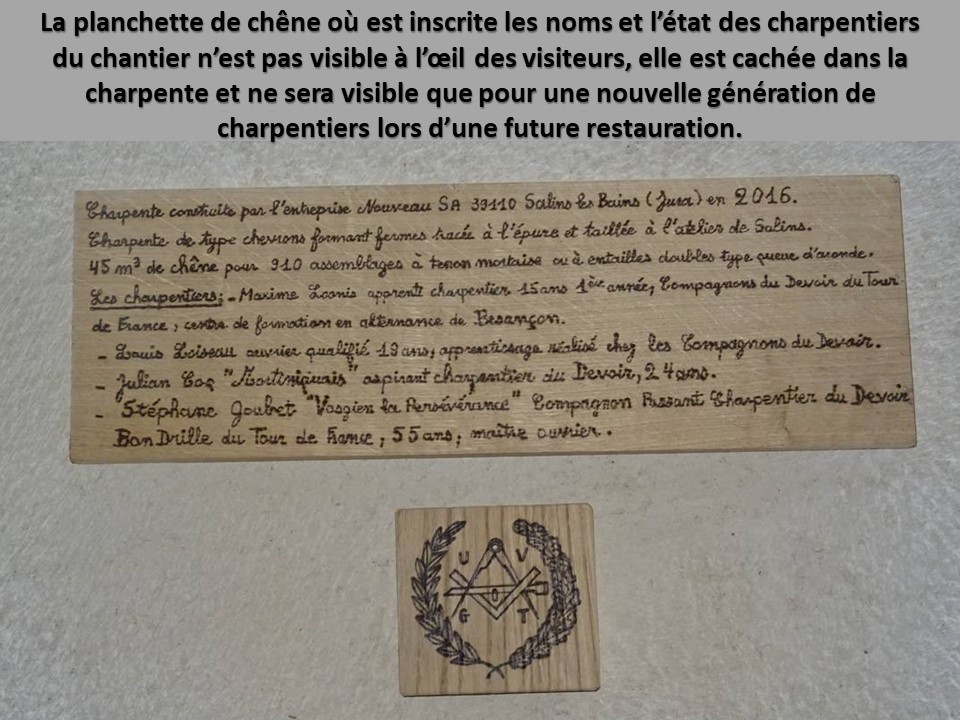 La planchette de chêne où est inscrite les noms et l’état des charpentiers
du chantier n’est pas visible à l’œil des visiteurs, elle est cachée dans la
charpente et ne sera visible que pour une nouvelle génération de
charpentiers lors d’une future restauration.
Charpente construite par l'entreprise Nouveau SA 39110 Salins les Bains (Jura) en 2016.
Charpente de type chevrons formant fermes tracée à l'épure et taillée à l'atelier de Salins.
45 m³ de chêne pour 910 assemblages à tenon mortaise ou à entailles doubles type queue d'aronde.
Les charpentiers; - Maxime Loonis apprenti charpentier 15 ans 1ère année, Compagnons du Devoir du Tour
de France, centre de formation en alternance de Besançon.
- Louis Loiseau ouvrier qualifié 19 ans, apprentissage réalisé chez les Compagnons du Devoir.
- Julian Coq "Martiniquais" aspirant charpentier du Devoir, 24 ans.
- Stéphane Goubet "Vosgien la Persévérance" Compagnon Passant Charpentier du Devoir
Bon Drille du Tour de France, 55 ans, maître ouvrier.
U V
G T